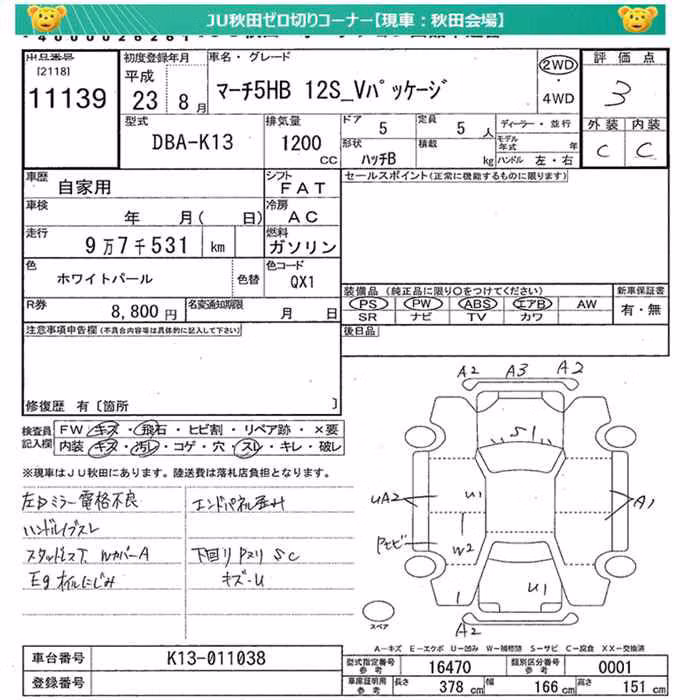 JU秋田ゼロ切りコーナー【現車：秋田会場】
出品番号
[2118]
11139
初度登録年月
平成
23 8月
車名・グレード
マーチ5HB 12S_Vパッケージ
2WD
・
4WD
評価点
3
外装 内装
C C
型式
DBA-K13
排気量
1200
CC
ドア 5
定員 5 人
形状 ハッチB
積載 kg
ディーラー・並行
モデル年式 年
ハンドル 左・右
車歴
自家用
シフト
FAT
セールスポイント(正常に機能するものに限ります)
車検
年 月( 日)
冷房
AC
走行
9万7千531 km
燃料
ガソリン
色
ホワイトパール
色替
色コード
QX1
装備品 (純正品に限り○をつけてください)
PS PW ABS エアB AW
SR ナビ TV カワ
新車保証書
有・無
R券
8,800円
名変通知期限
月 日
後日品
注意事項申告欄(不具合内容等は具体的に記入して下さい)
修復歴 有〔箇所 〕
検査員記入欄
FW キズ・飛石・ヒビ割・リペア跡・×要
内装 キズ・汚レ・コゲ・穴・スレ・キレ・破レ
※現車はJU秋田にあります。陸送費は落札店負担となります。
左Dミラー電格不良
ハンドルイブスレ
スタッドレスT. WカバーA
Egオイルにじみ
エンドパネル歪み
下回り Pスリ SC
キズ-U
A2 A3 A2
S1
UA2
U1
A1
Pモビ
W2
1
U1
A2
スペア
A-キズ E-エクボ U-凹み W-補修跡 S-サビ C-腐食 XX-交換済
車台番号
K13-011038
登録番号
型式指定番号 参考
16470
類別区分番号 参考
0001
車庫証明用 参考
長さ 378 cm
幅 166 cm
高さ 151 cm